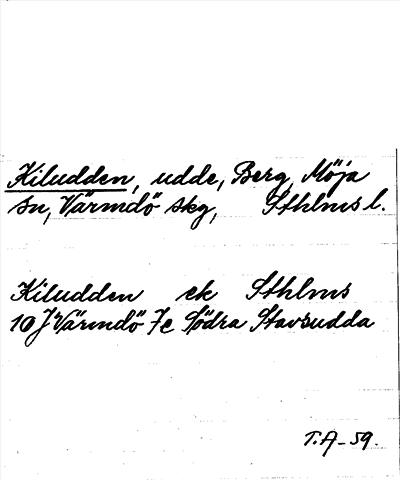 Kiludden, udde, Berg, Möja
sn, Värmdö skg, Sthlms l.
Kiludden ek Sthlms
10 J Värmdö 7e Södra Stavsudda
T.A-59.